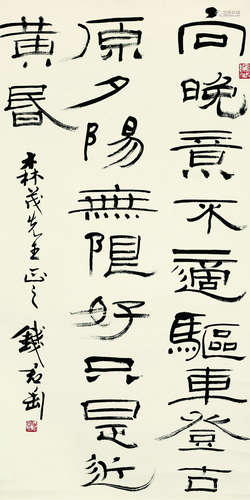 向晚意不適驅車登古
原夕陽無限好只是近
黄昏
森茂先生正之
錢君匋